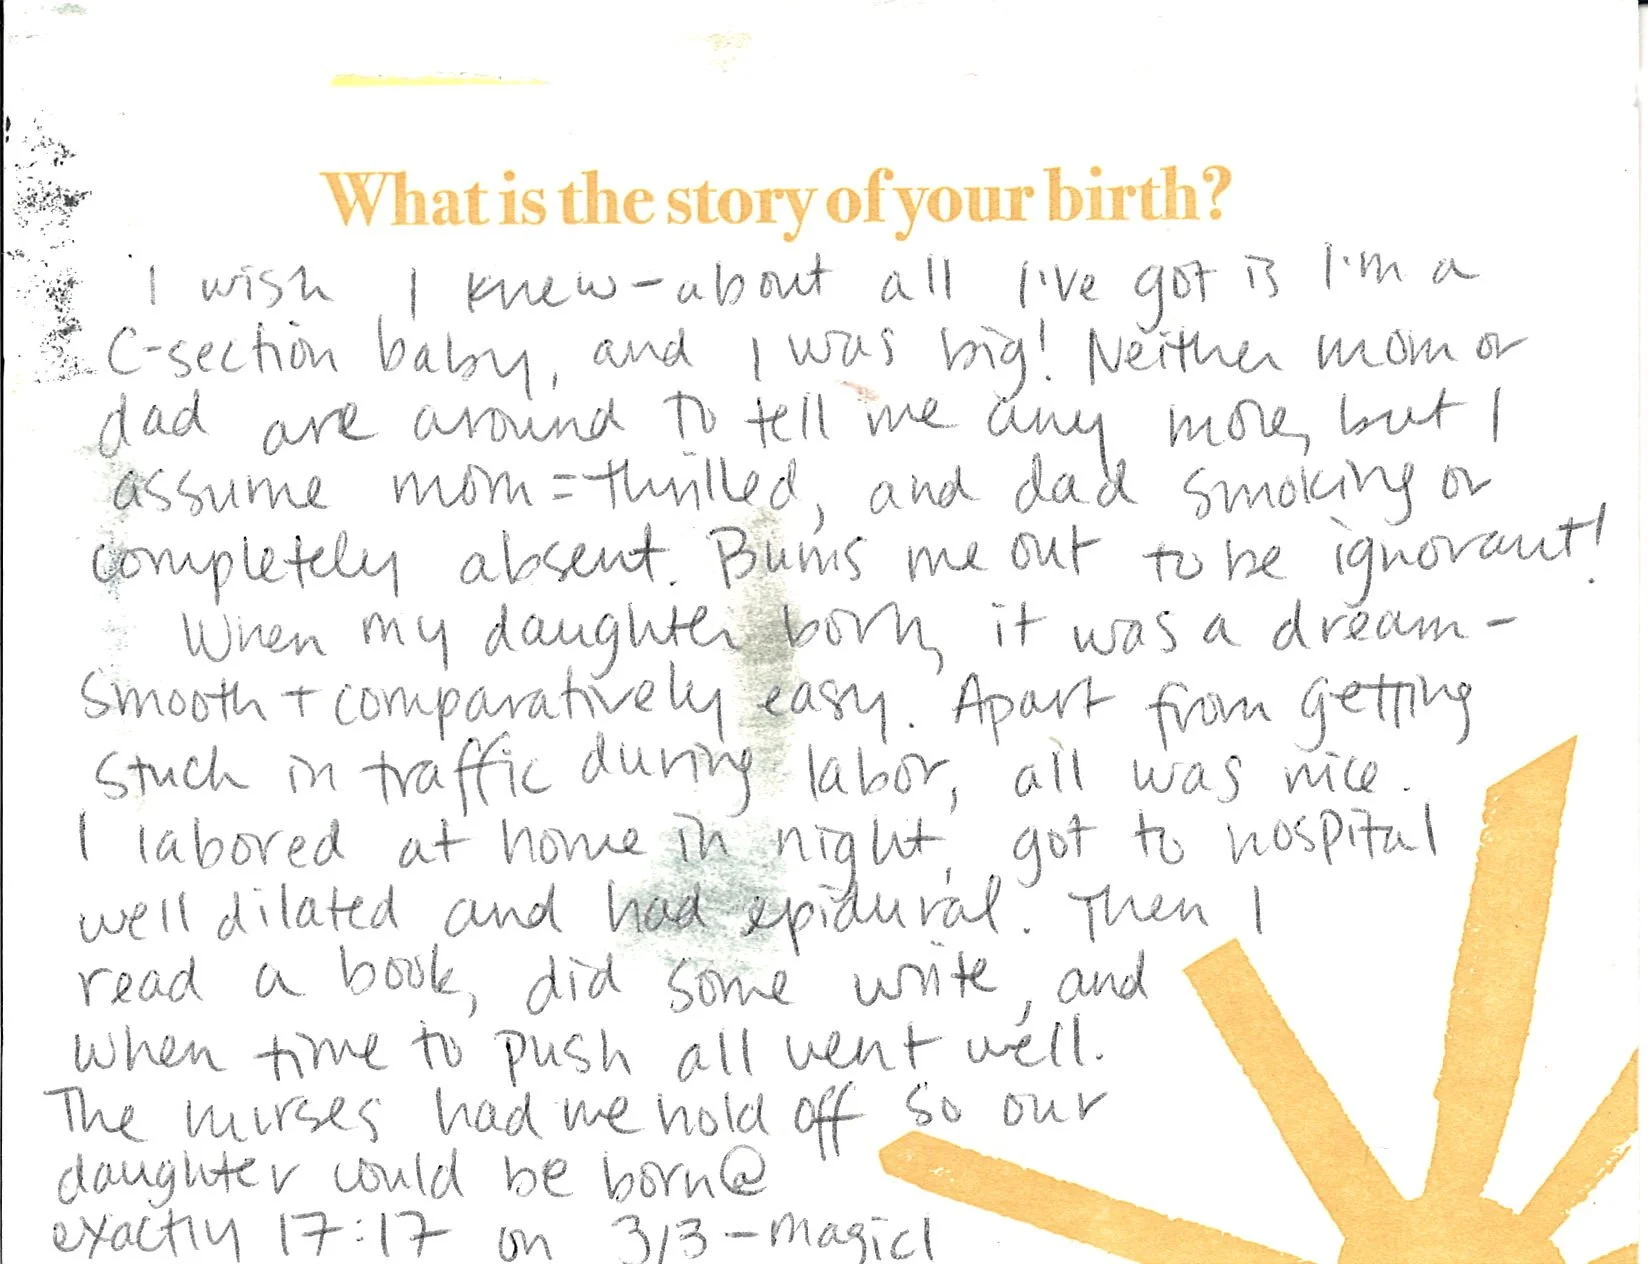 What is the story of your birth?
I wish I knew - about all I've got is I'm a
C-section baby, and I was big! Neither mom or
dad are around to tell me any more, but I
assume mom = thrilled, and dad smoking or
completely absent. Bums me out to be ignorant!
When my daughter born, it was a dream -
smooth + comparatively easy. Apart from getting
stuck in traffic during labor, all was nice.
I labored at home in night, got to hospital
well dilated and had epidural. Then I
read a book, did some write, and
when time to push all went well.
The nurses had me hold off so our
daughter could be born @
exactly 17:17 on 3/3 - magic!